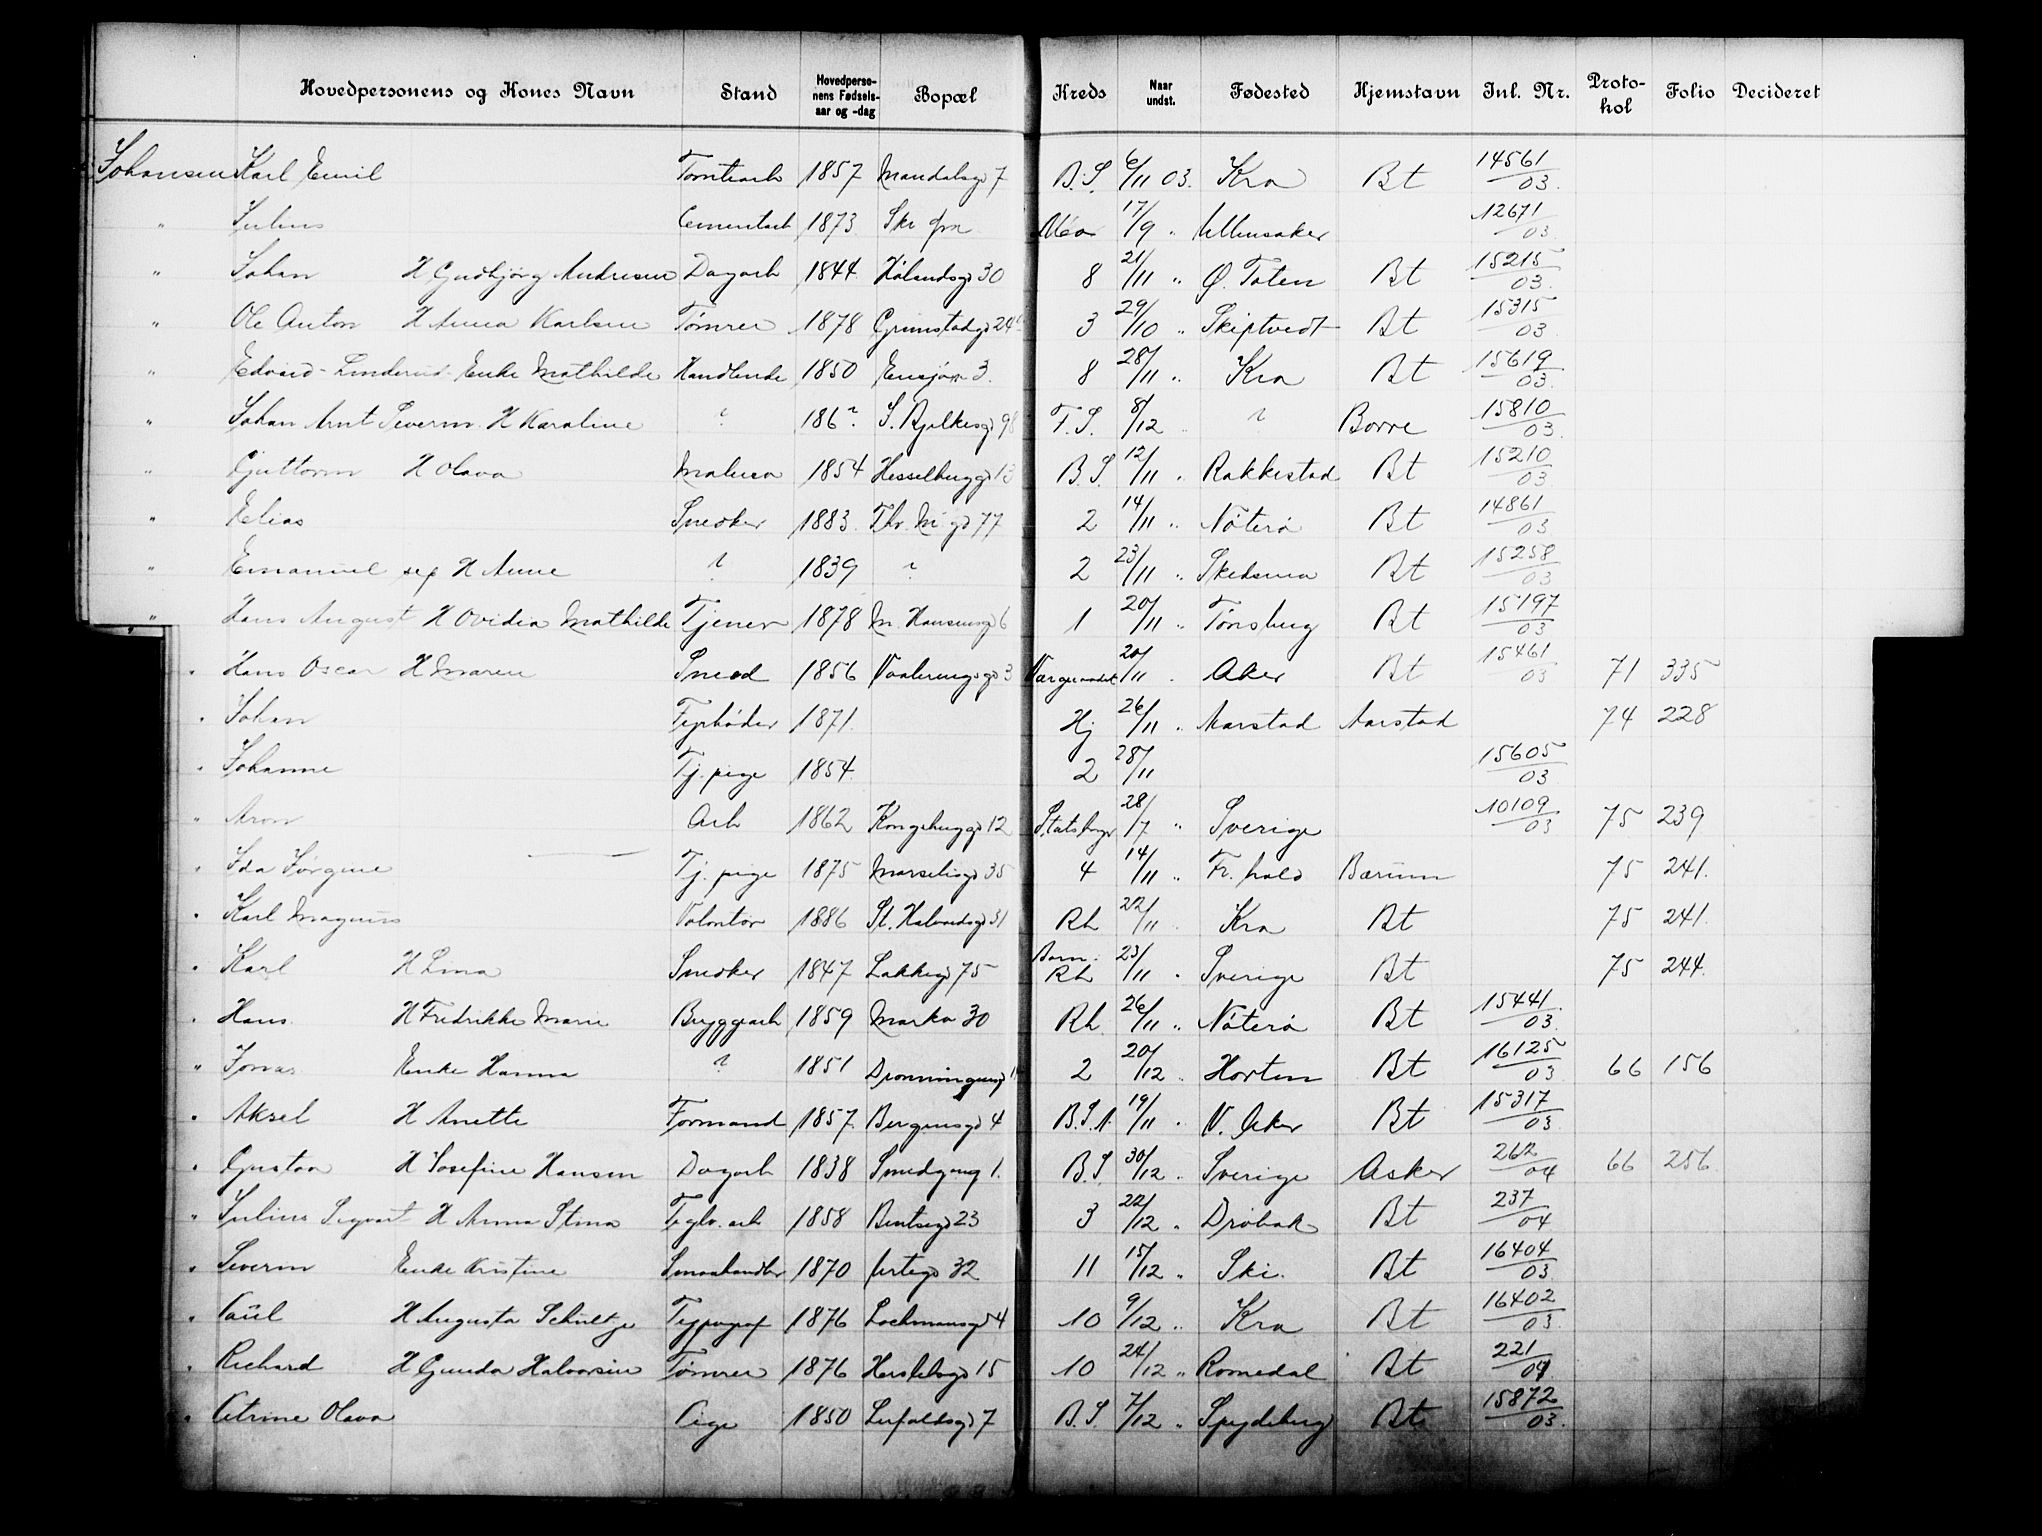 Hovedpersonens og Kones Navn Stand Hovedpersonens Fødselsaar og -dag Bopæl Kreds Naar undst. Fødested Hjemstavn Inl. Nr. Protokol Folio Decideret
Johansen Karl Emil Tomtearb 1857 Mandalsgd 7 B.S. 6/11 03. Kra Bt 14561/03.
" Julius Cementarb 1873 Ski 17/9 " Ullensaker 12671/03
" Johan H Gudbjörg Andresen Dagarb 1844 Hølandsgd 30 8 21/11 " Ø. Toten Bt 15215/03.
" Ole Anton H Anna Karlsen Tømrer 1878 Grimstadgd 24 3 29/10 " Skiptvedt Bt 15315/03.
" Edvard Linderud Enke Mathilde Handlende 1850 Ensjøvn 3. 8 28/11 " Kra Bt 15619/03.
" Johan Arnt Severin H Karoline ? 186? J. Bjelkesgd 98 F.S. 8/12 " ? Borre 15810/03.
" Guttorm H Olava Malersv 1854 Hesselberggd 13 B.S. 12/11 " Rakkestad Bt 15210/03
" Elias Snedker 1883. Thv. M gd 77 2 14/11 " Nøterø Bt 14861/03
" Emanuel sep H Anne ? 1839 ? 2 23/11 " Skedsmo Bt 15258/03
" Hans August H Ovidia Mathilde Tjener 1878 M. Hansensgd 6 1 20/11 " Tønsberg Bt 15197/03
" Hans Oscar H Maren Smed 1856 Vaalerengsgd 3 20/11 " Aker Bt 15461/03 71 335
" Johan Fyrbøder 1871. Hj 26/11 " Aarstad Aarstad 74 228
" Johanne Tj. pige 1854 2 28/11 15605/03
" Aron Arb 1862 Kongebyggd 12 28/7 " Sverige 10109/03 75 239
" Ida Jørgine Tj. pige 1875 Marselisgd 35 4 14/11 " Fr. hald Bærum 75 241.
" Karl Magnus Volontør 1886 St. Halvardsgd 31 Rh 22/11 " Kra Bt 75 241.
" Karl H Lina Snedker 1847 Lakkegd 75 Barn. Rh 23/11 " Sverige Bt 75 244.
" Hans H Fredrikke Marie Bryggearb 1859 Markv 30 Rh. 26/11 " Nøterø Bt 15441/03.
" Jonas Enke Hanna ? 1851 Dronningensgd 2 20/12 " Horten Bt 16125/03 66 156
" Aksel H Anette Formand 1857. Bergensgd 4 B.S.A. 19/11 " V. Aker Bt 15317/03.
" Gustav H Josefine Hansen Dagarb 1838 Smedgang 1. B.S 30/12 " Sverige Asker 262/04 66 256
" Julius Sigvart H Anna Stina Teglv. arb 1858 Bentsegd 23 3 22/12 " Drøbak Bt 237/04
" Severin Enke Kristine Smaahandler 1870 32 11 15/12 " Ski. Bt 16404/03.
" Paul H Augusta Schultze Typograf 1876 Lochmansgd 4 10 9/12 " Kra Bt 16402/03.
" Richard H Gunda Halvorsen Tømrer 1876 Herslebsgd 15 10 24/12 " Romedal Bt 221/04
" Petrine Olava Pige 1850 Leufaldsgd 7 B.S. 7/12 " Spydeberg Bt 15872/03.